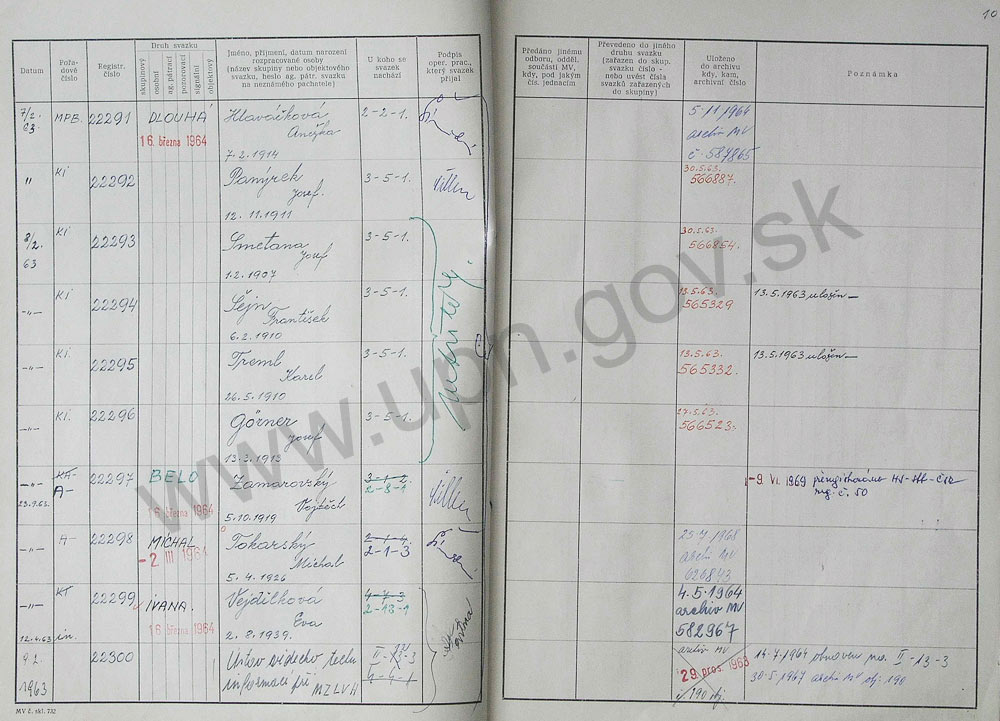 10
Datum
Pořadové číslo
Registr. číslo
Druh svazku
skupinový
osobní
ag. pátrací
pozorovací
signální
objektový
Jméno, příjmení, datum narození
rozpracované osoby
(název skupiny nebo objektového
svazku, heslo ag. pátr. svazku
na neznámého pachatele)
U koho se
svazek
nachází
Podpis
oper. prac.,
který svazek
přijal
Předáno jinému
odboru, odděl.
součásti MV,
kdy, pod jakým
čís. jednacím
Převedeno do jiného
druhu svazku
(zařazen do skup.
svazku číslo -
nebo uvést čísla
svazků zařazených
do skupiny)
Uloženo
do archivu
kdy, kam,
archivní číslo
Poznámka
7/2. 63 MPB. 22291 DLOUHÁ Hlaváčková 2-2-1. 5.11.1964
16. března 1964 Anežka archiv MV
7.2.1914 č. 587865
" KI 22292 Panýrek 3-5-1. 30.5.63.
Josef. 566887.
12.11.1911
8/2. 63 KI 22293 Smetana 3-5-1. 30.5.63.
Josef 566854.
1.2.1907
-"- KI 22294 Šejn 3-5-1. 13.5.63. 13.5.1963 uložen
František 565329
6.2.1910
-"- KI. 22295 Treml 3-5-1. 13.5.63. 13.5.1963 uložen
Karel 565332.
26.5.1910
-"- KI. 22296 Görner 3-5-1. 27.5.63.
Josef 566523.
13.3.1913
-"- KA- 22297 BELO Zamarovský 3-1-2. -9. VI. 1969
A- 2-8-1 č. 50
23.9.63. 16. března 1964 Vojtěch
5.10.1919
-"- A- 22298 MICHAL Tokarský 2-1-4. 25.7.1968
-2. III 1964 Michal 2-1-3 archiv MV
5.4.1926 626843
-"- KT 22299 IVANA. Vejdílková 4-7-3 4.5.1964
16. března 1964 Eva 2-18-1 archiv MV
12.4.63 2.8.1939. 582967
9.2. 1963 22300 Ústav vědecko techn. II-13-3 archiv MV 14.7.1964 obnoven II-13-3
informací při MZLVH 29. pros. 1963 30.5.1967 archiv MV obj. 190
č. 190 obj.
MV č. skl. 732
www.upn.gov.sk